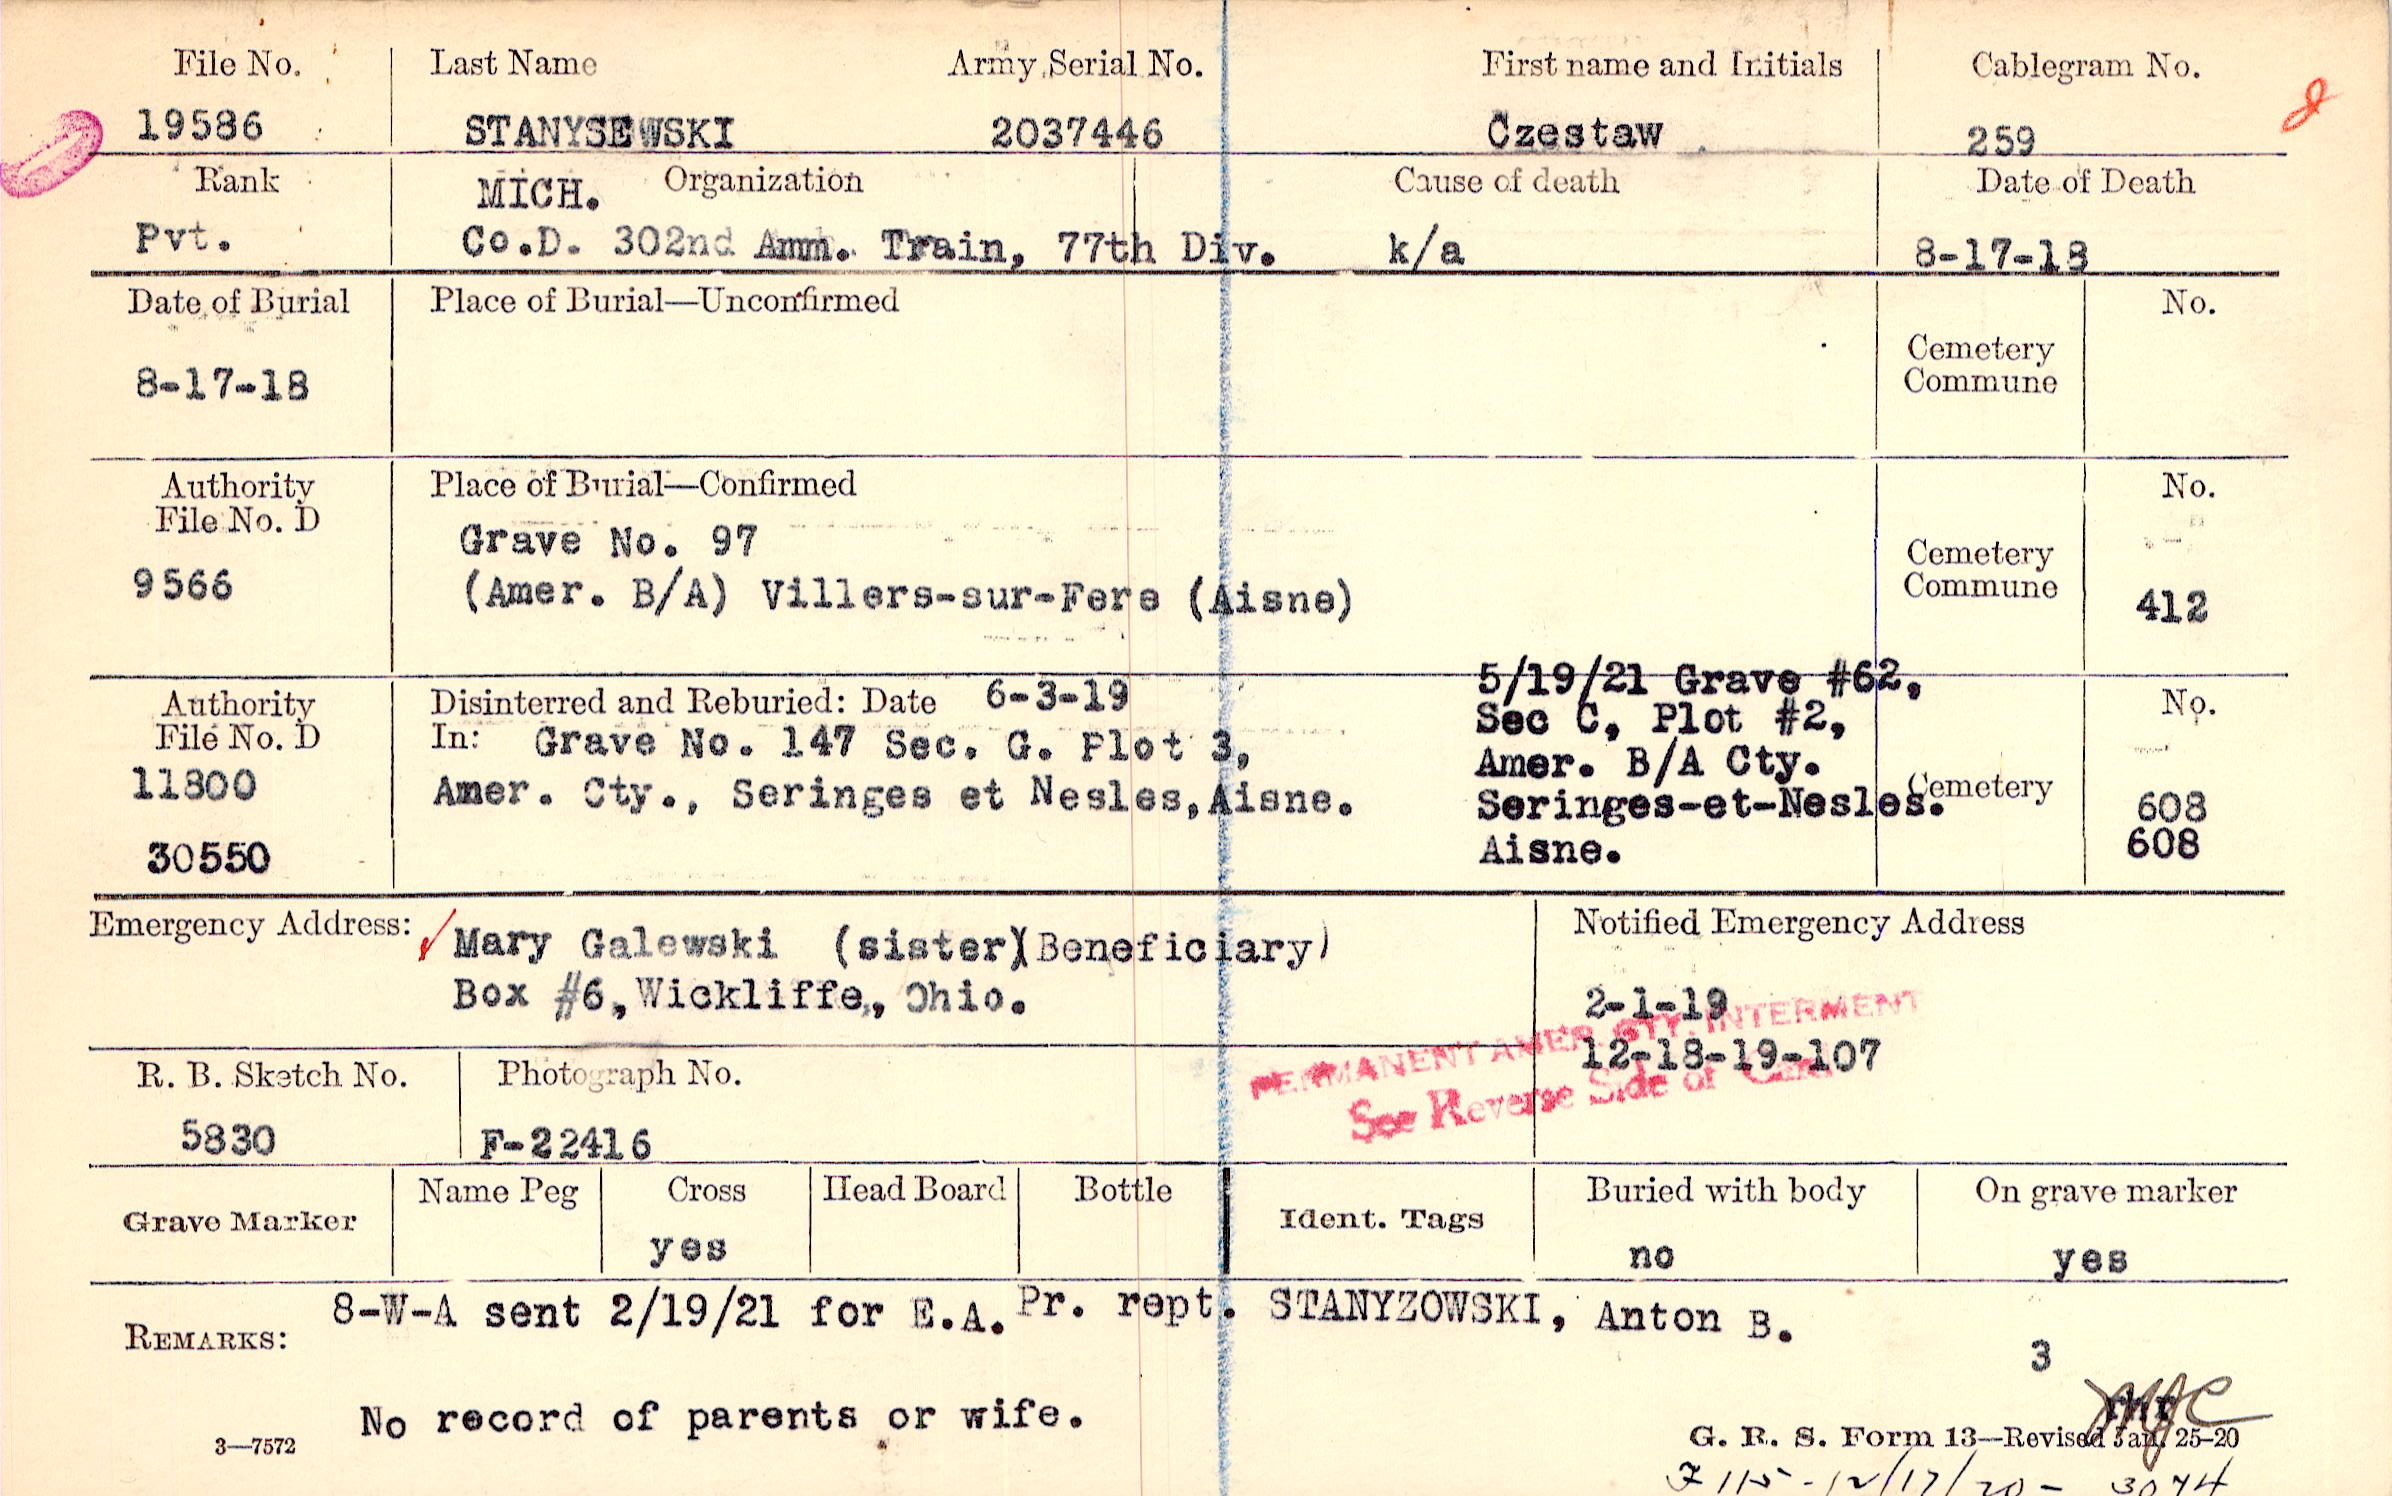 File No. Last Name Army Serial No. First name and Initials Cablegram No.
19586 STANYSEWSKI 2037446 Czestaw 259
Rank MICH. Organization Cause of death Date of Death
Pvt. Co.D. 302nd Amm. Train, 77th Div. k/a 8-17-18
Date of Burial Place of Burial—Unconfirmed No.
Cemetery
Commune
8-17-18
Authority Place of Burial—Confirmed No.
File No. D
Grave No. 97
Cemetery
Commune
9566 (Amer. B/A) Villers-sur-Fere (Aisne) 412
Authority Disinterred and Reburied: Date 6-3-19 No.
File No. D In: Grave No. 147 Sec. G. Plot 3,
11800 Amer. Cty., Seringes et Nesles, Aisne.
30550
5/19/21 Grave #62,
Sec C, Plot #2,
Amer. B/A Cty.
Seringes-et-Nesles.
Aisne.
Cemetery
608
608
Emergency Address: Mary Galewski (sister)(Beneficiary)
Box #6, Wickliffe, Ohio.
Notified Emergency Address
2-1-19
12-18-19-107
PERMANENT AMER. CTY. INTERMENT
See Reverse Side of Card
R. B. Sketch No. Photograph No.
5830 F-22416
Grave Marker Name Peg Cross Head Board Bottle Ident. Tags Buried with body On grave marker
yes no yes
REMARKS: 8-W-A sent 2/19/21 for E.A. Pr. rept. STANYZOWSKI, Anton B.
3
No record of parents or wife.
3—7572
G. R. S. Form 13—Revised Jan. 25-20